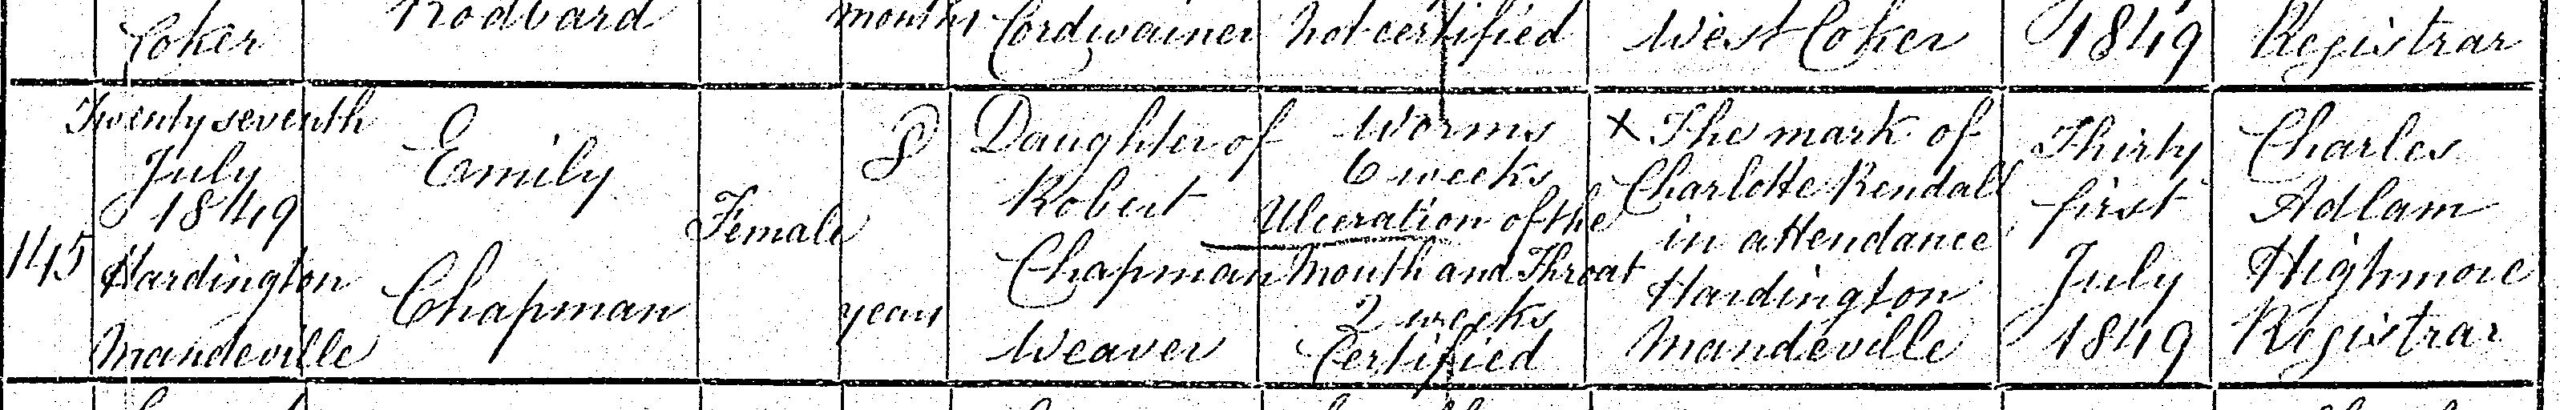 Coker
Rodbard
months
Cordwainer
Not certified
West Coker
1849
Registrar
145
Twenty seventh
July
1849
Hardington
Mandeville
Emily
Chapman
Female
8
years
Daughter of
Robert
Chapman
Weaver
Worms
6 weeks
Ulceration of the
Mouth and Throat
2 weeks
Certified
X The mark of
Charlotte Rendall
in attendance
Hardington
Mandeville
Thirty
first
July
1849
Charles
Adlam
Highmore
Registrar